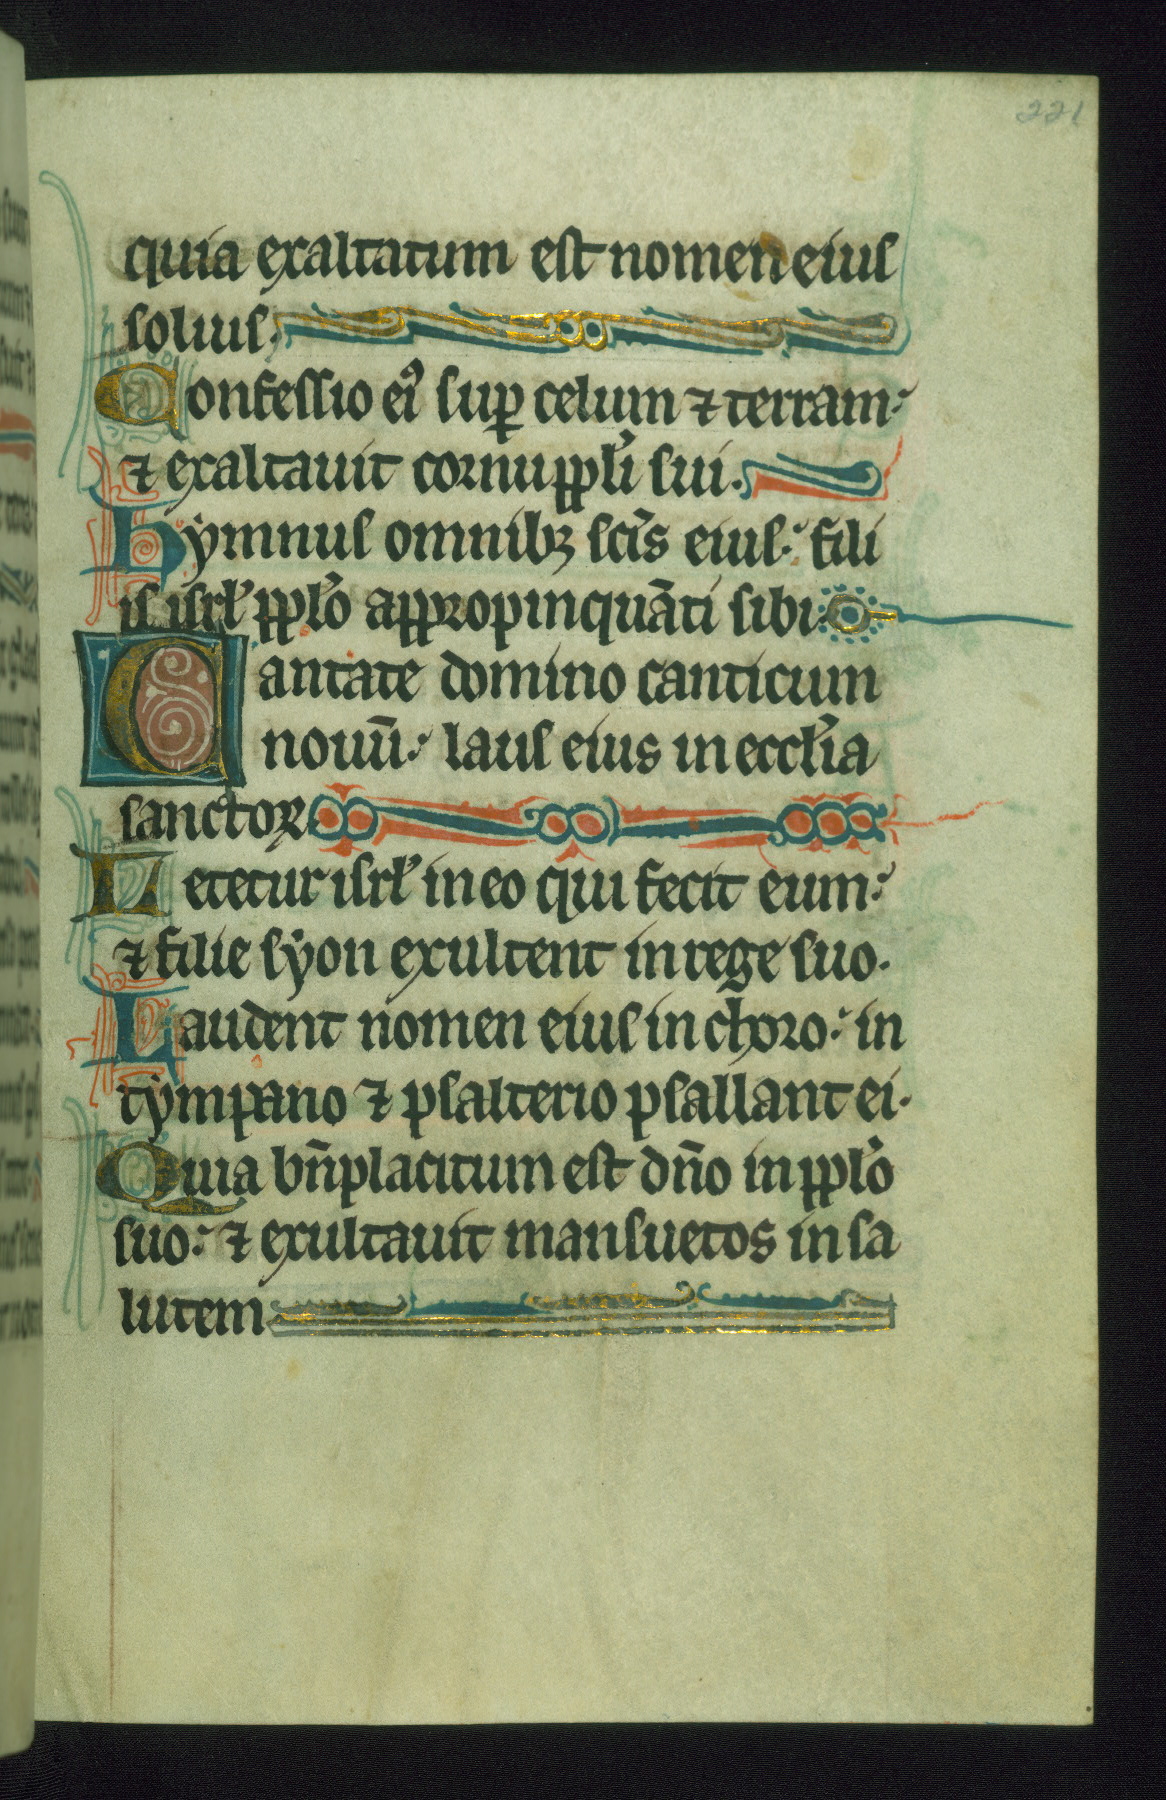 221
quia exaltatum est nomen eius
solius.
Confessio ei᷒ sup̲ celum ⁊ terram·
⁊ exaltauit cornu ppl̓i sui.
Hymnus omnibꝫ sc̄is eius· fili
is isrl̓ ppl̓o appropinquāti sibi.
Cantate domino canticum
nouū· laus eius in eccl̓ia
sanctoꝝ.
Letetur isrl̓ in eo qui fecit eum·
⁊ filie syon exultent in rege suo.
Laudent nomen eius in choro· in
tympano ⁊ psalterio psallant ei.
Quia bn̄placitum est dn̄o in ppl̓o
suo· ⁊ exultauit mansuetos in sa
lutem